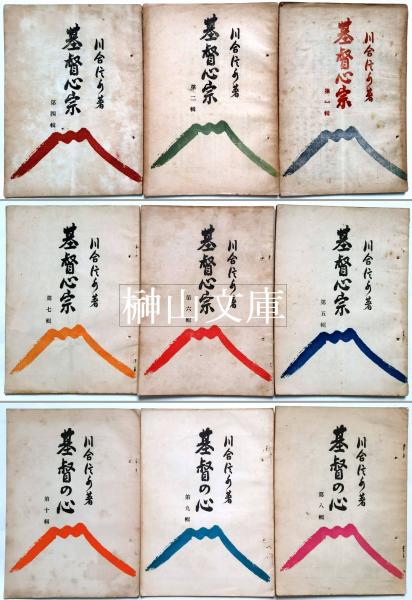 川合信水著
基督心宗
第一輯
川合信水著
基督心宗
第二輯
川合信水著
基督心宗
第四輯
川合信水著
基督心宗
第五輯
川合信水著
基督心宗
第六輯
川合信水著
基督心宗
第七輯
榊山文庫
川合信水著
基督の心
第八輯
川合信水著
基督の心
第九輯
川合信水著
基督の心
第十輯